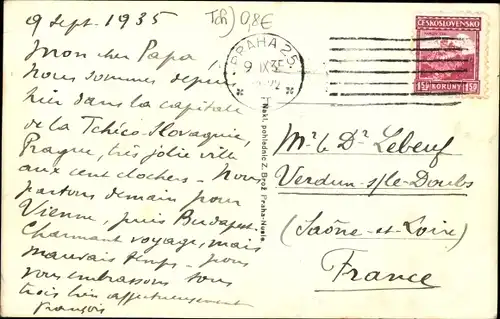 9 Sept. 1935
Tch) 0,8€
Mon cher Papa,
Nous sommes depuis
hier dans la capitale
de la Tchéco-Slovaquie,
Prague, très jolie ville
aux cent clochers - Nous
partons demain pour
Vienne, puis Budapest.
Charmant voyage, mais
mauvais temps -
vous embrassons tous
trois bien affectueusement
François
PRAHA 25
9 IX 35
ČESKOSLOVENSKO
150 KORUNY 1.50
Nakl. pohlednic Z. Brož, Praha-Nusle.
Mr le Dr Lebeuf
Verdun s/le Doubs
(Saône-et-Loire)
France